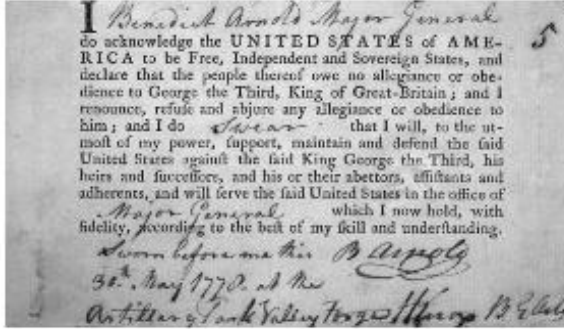 I Benedict Arnold Major General
do acknowledge the UNITED STATES of AME-
RICA to be Free, Independent and Sovereign States, and
declare that the people thereof owe no allegiance or obe-
dience to George the Third, King of Great-Britain; and I
renounce, refuse and abjure any allegiance or obedience to
him; and I do Swear that I will, to the ut-
most of my power, support, maintain and defend the said
United States against the said King George the Third, his
heirs and successors, and his or their abettors, assistants and
adherents, and will serve the said United States in the office of
Major General which I now hold, with
fidelity, according to the best of my skill and understanding.
Sworn before me this B Arnold
30th May 1778. at the
Artillery Park Valley Forge HKnox B G Art
5